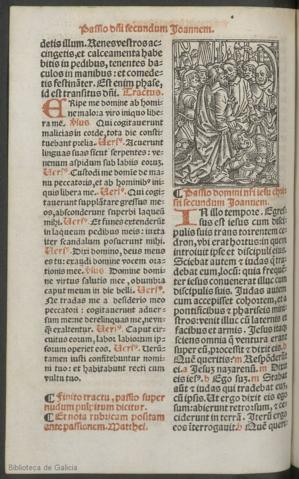 Passio dñi secundum Joannem.
detis illum. Renes vestros ac-
cingetis, et calceamenta habe
bitis in pedibus, tenentes ba-
culos in manibus: et comede-
tis festinãter. Est enim phase,
id est transitus dñi. Tractus.
ERipe me domine ab homi-
ne malo: a viro iniquo libe-
ra me. Vsus. Qui cogitauerunt
malicias in corde, tota die consti-
tuebant prelia. Versus. Acuerunt
linguas suas sicut serpentes: ve-
nenum aspidum sub labiis eorum.
Versus. Custodi me domine de ma-
nu peccatoris, et ab hominibus ini-
quis libera me. Versus. Qui cogi-
tauerunt supplãtare gressus me-
os, absconderunt superbi laqueũ
mihi. Versus. Et funes extenderũt
in laqueum pedibus meis: iuxta
iter scandalum posuerunt mihi.
Versus. Dixi domino, deus meus
es tu: exaudi domine vocem ora-
tionis mee. Vsus. Domine domi-
ne virtus salutis mee, obumbra
caput meum in die belli. Versus.
Ne tradas me a desiderio meo
peccatori: cogitauerunt aduer-
sum me ne derelinquas me, ne vn-
quã exaltentur. Versus. Caput cir-
cuitus eorum, labor labiorum ip-
sorum operiet eos. Versus. Verũ-
tamen iusti confitebuntur nomi-
ni tuo: et habitabunt recti cum
vultu tuo.
¶ Finito tractu, passio super
nudum pulpitum dicitur.
¶ Et nota rubricam positam
ante passionem. Matthei.
¶ Passio domini nri iesu chri-
sti secundum Joannem.
IN illo tempore. Egres-
sus est iesus cum disci-
pulis suis trans torrentem ce-
dron, vbi erat hortus: in quem
introiuit ipse et discipuli eius
Sciebat autem et iudas q tra-
debat eum, locũ: quia frequẽ-
ter iesus conuenerat illuc cum
discipulis suis. Judas autem
cum accepisset cohortem, et a
pontificibus et phariseis mini-
stros: venit illuc cũ laternis et
facibus et armis. Jesus itaqz
sciens omnia q ventura erant
super eũ, processit et dixit eis
Quẽ queritis: Respõderũt
ei. Jesum nazarenũ. Dicit
eis iesus. Ego sum. Stabat
aũt et iudas qui tradebat eum,
cũ ipsis. Ut ergo dixit eis ego
sum: abierunt retrorsum, et ce-
ciderunt in terrã. Iterũ ergo
eos interrogauit. Quẽ queri-
Biblioteca de Galicia